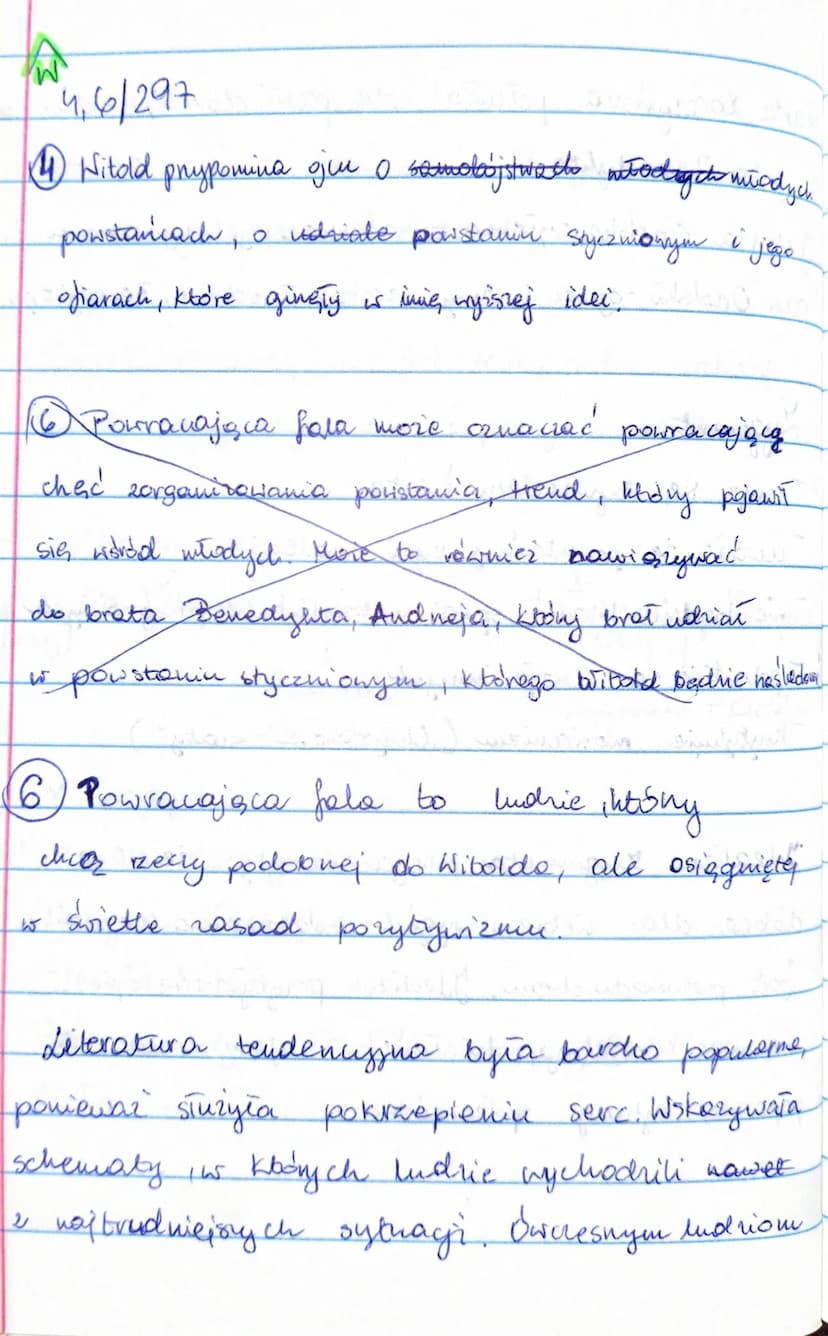 W
4,6/297
4 Witold przypomina ojcu o samobójstwach młodych młodych
powstańcach, o udziale powstaniu styczniowym i jego
ofiarach, które ginęły w imię wyższej idei.
6 Powracająca fala może oznaczać powracającą
chęć zorganizowania powstania, trend, który pojawił
się wśród młodych. Może to również nawiązywać
do brata Benedykta, Andrzeja, który brał udział
w powstaniu styczniowym, którego Witold będzie naśladował
6 Powracająca fala to ludzie, którzy
chcą rzeczy podobnej do Witolda, ale osiągniętej
w świetle zasad pozytywizmu.
Literatura tendencyjna była bardzo popularna,
ponieważ służyła pokrzepieniu serc. Wskazywała
schematy, w których ludzie wychodzili nawet
z najtrudniejszych sytuacji. Ówczesnym ludziom